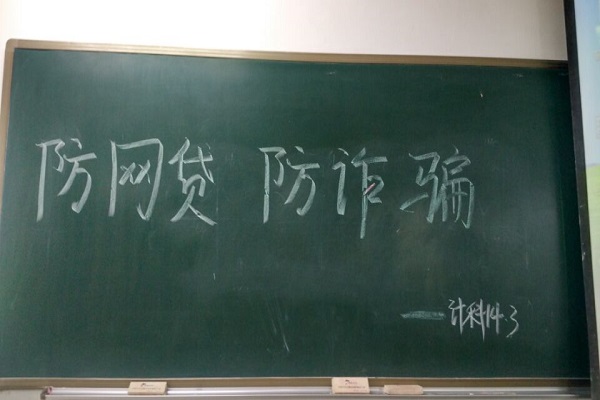 防网贷 防诈骗
——计科14.3